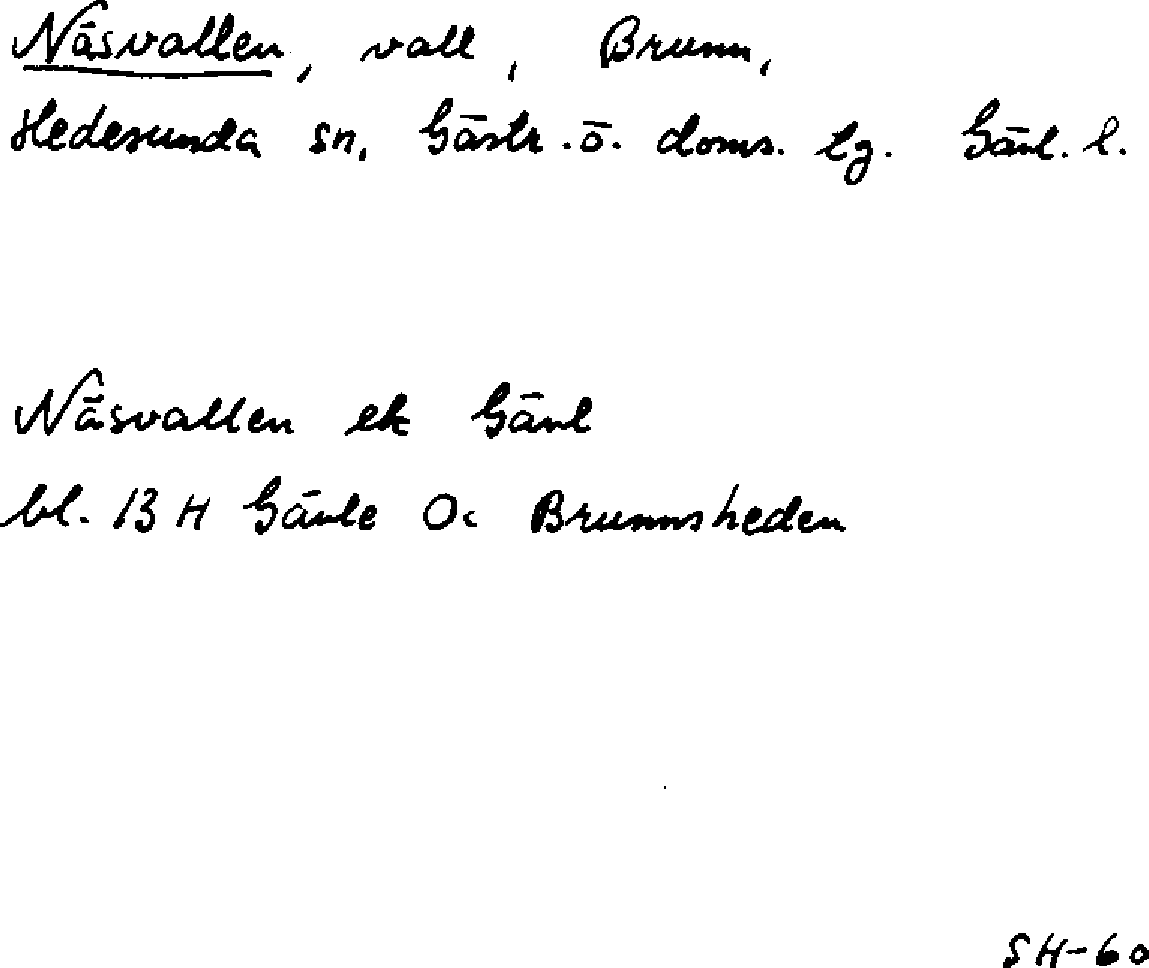 Näsvallen, vall, Brunn,
Hedesunda sn, Gästr. ö. doms. lg. Gävl. l.
Näsvallen ek Gävl
bl. 13 H Gävle Oc Brunnsheden
SH-60